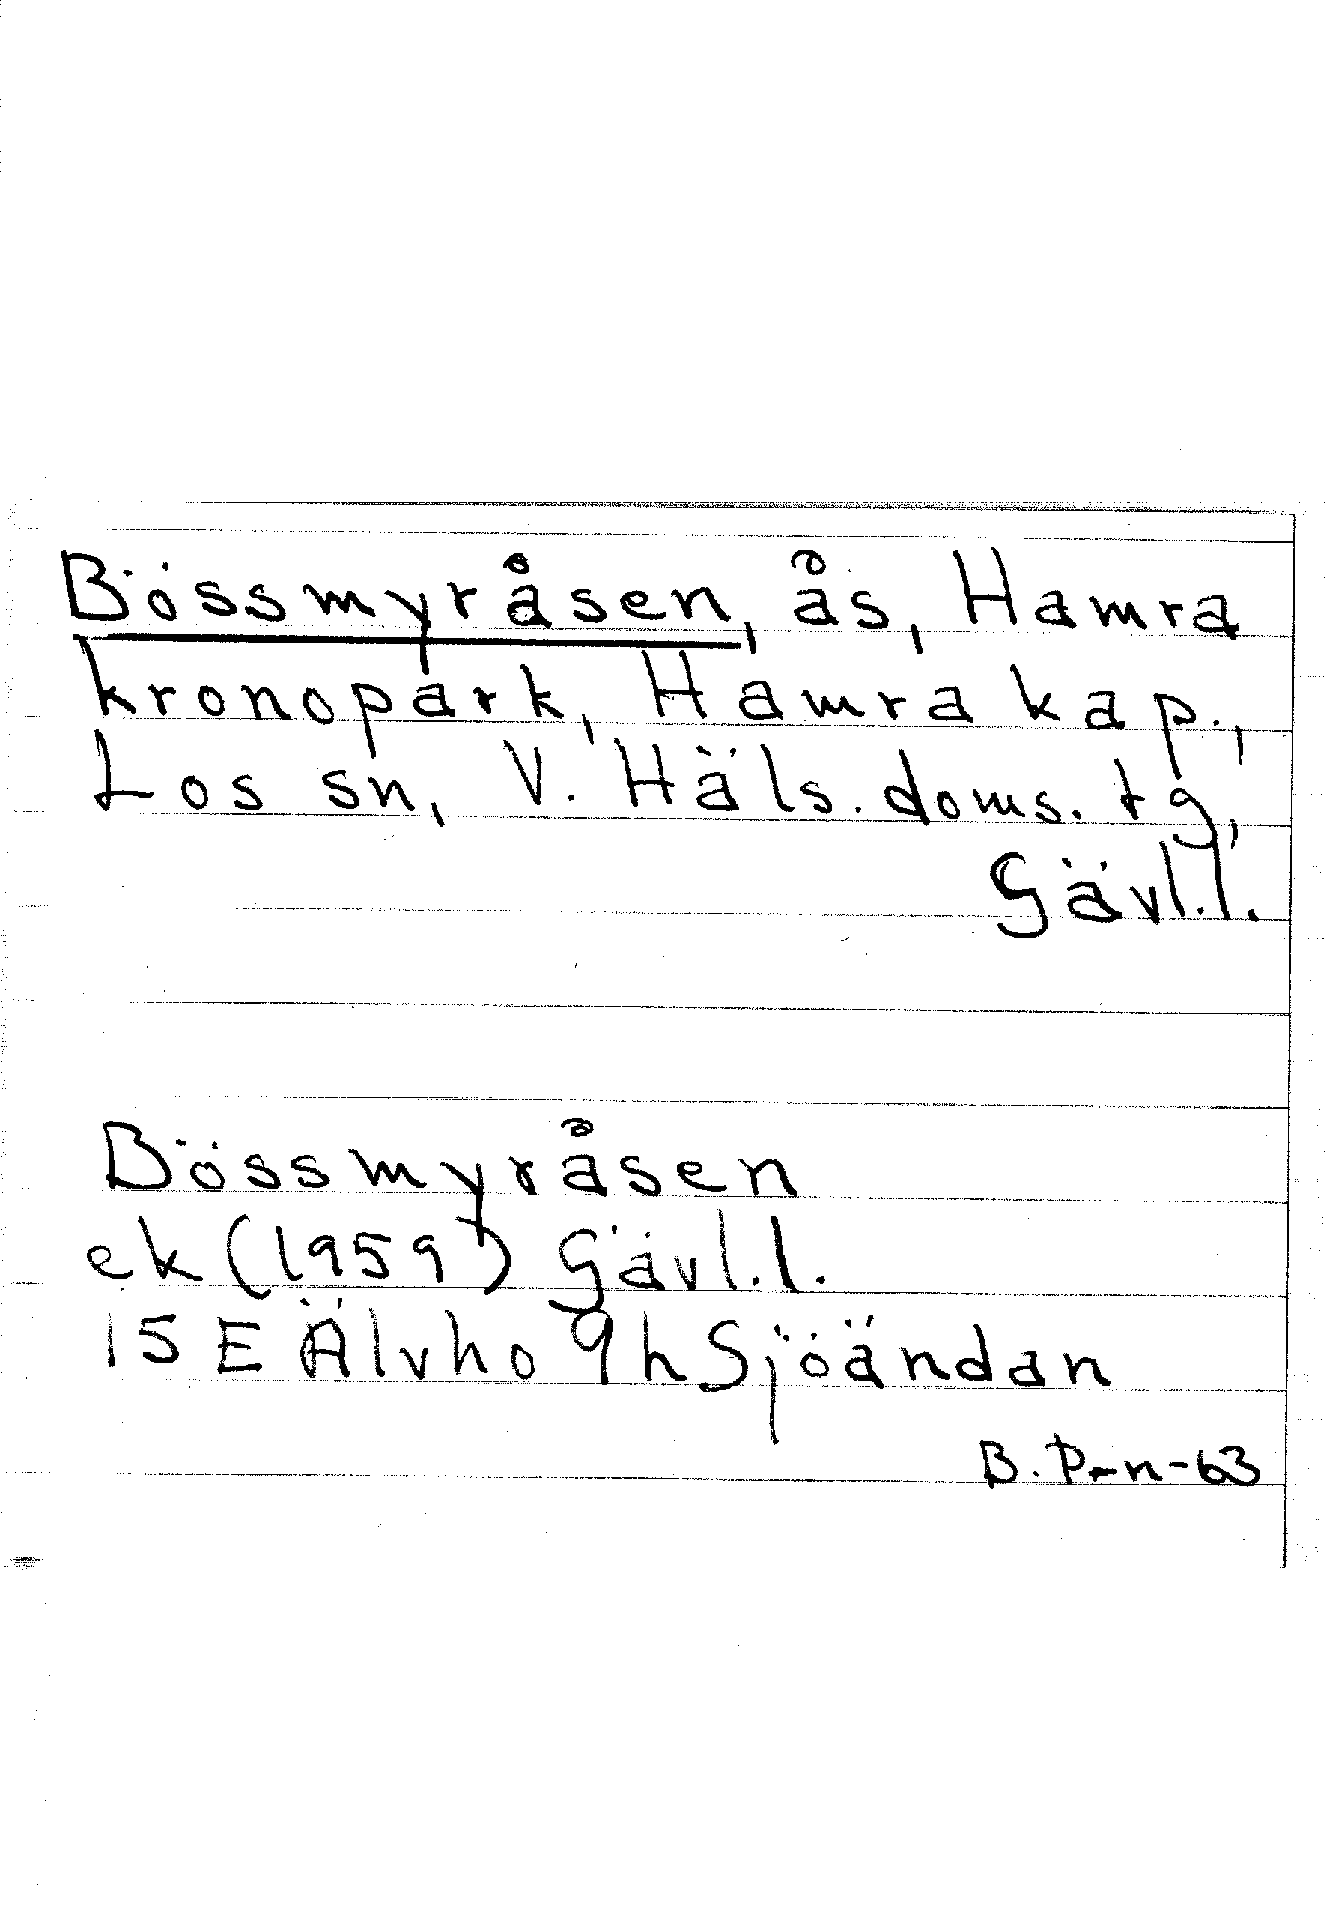 Bössmyråsen, ås, Hamra
kronopark, Hamra kap.,
Los sn, V. Häls. doms. tg,
Gävl.l.
Bössmyråsen
ek (1959) Gävl.l.
15 E Älvho 9h Sjöändan
B. P-n-63